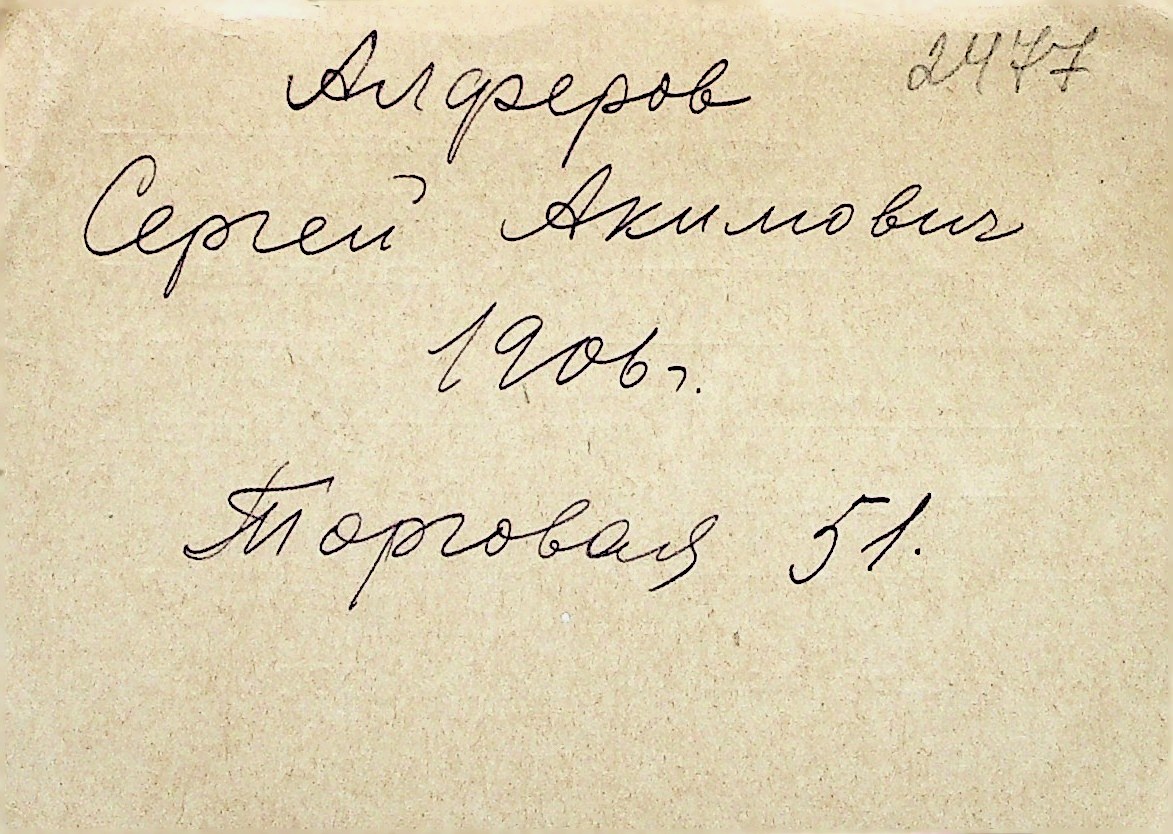 2477
Алферов
Сергей Акимович
1906г.
Торговая 51.